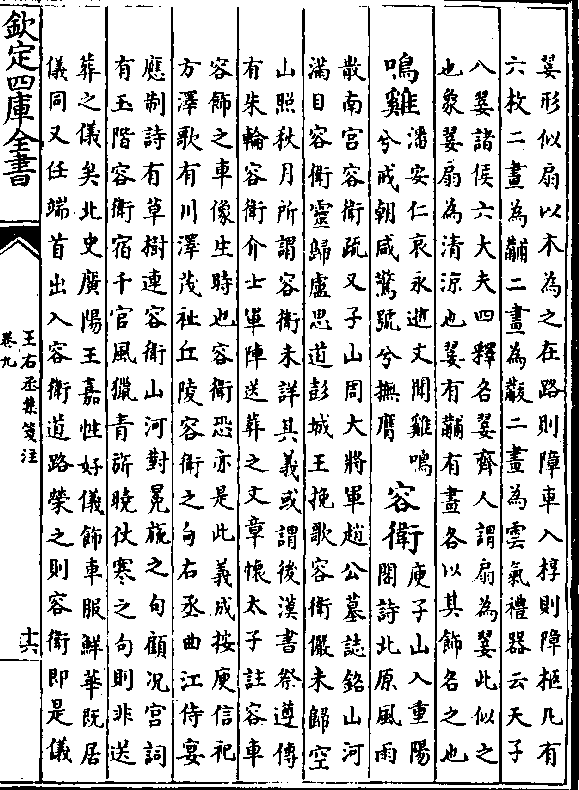 翣形似扇以木為之在路則障車入椁則障柩凡有
六枚二畫為黼二畫為黻二畫為雲氣禮器云天子
八翣諸侯六大夫四釋名翣齊人謂扇為翣此似之
也象翣扇為清涼也翣有黼有畫各以其飾名之也
鳴雞
潘安仁哀永逝文聞雞鳴
兮戒朝咸驚號兮撫膺
容衛
庾子山入重陽
閣詩北原風雨
散南宮容衛疏又子山周大將軍趙公墓誌銘山河
滿目容衛靈歸盧思道彭城王挽歌容衛儼未歸空
山照秋月所謂容衛未詳其義或謂後漢書祭遵傳
有朱輪容衛介士軍陣送葬之文章懷太子註容車
容飾之車像生時也容衛恐亦是此義成按庾信祀
方澤歌有川澤茂祉丘陵容衛之句右丞曲江侍宴
應制詩有草樹連容衛山河對冕旒之句顧况宮詞
有玉階容衛宿千官風獵青旂曉仗寒之句則非送
葬之儀矣北史廣陽王嘉性好儀飾車服鮮華既居
儀同又任端首出入容衛道路榮之則容衛即是儀
欽定四庫全書
王右丞集箋注
卷九
十六